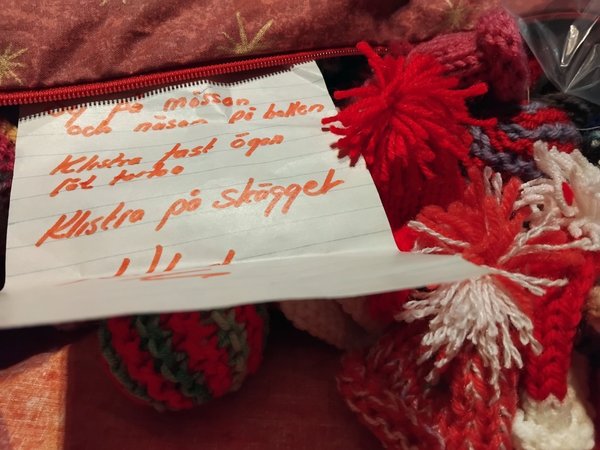 på mössan
och näsan på bollen
Klistra fast ögon
låt torka
Klistra på skägget